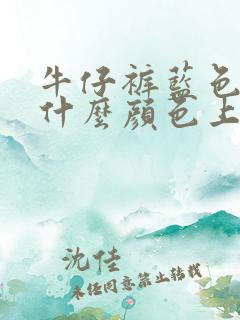 牛仔裤蓝色
什麼顔色上
沈佳
未经同意禁止转载